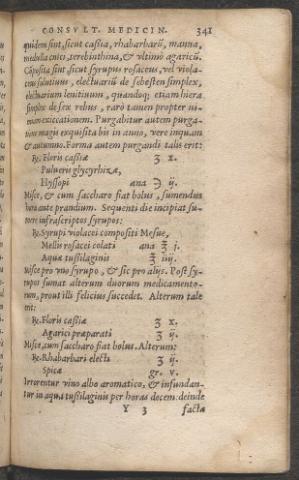 CONSVLT. MEDICIN. 341
quidem sint, sicut cassia, rhabarbarũ, manna,
medulla cnici, terebinthina, & vltimò agaricũ.
Cõposita sint, sicut syrupus rosaceus, vel viola-
ceus solutiuus, electuariũ de sebesten simplex,
electuarium lenitiuum, quandoq; etiam hiera
simplex: de sex rebus, rarò tamen propter ni-
miam exiccationem. Purgabitur autem purga-
tione magis exquisita bis in anno, vere inquam
& autumno. Forma autem purgandi talis erit:
℞. Floris cassiæ ʒ x.
Pulueris glycyrhizæ,
Hyssopi ana ℈ ij.
Misce, & cum saccharo fiat bolus, sumendus
hora ante prandium. Sequenti die incipiat su-
mere infrascriptos syrupos:
℞. Syrupi violacei compositi Mesue,
Mellis rosacei colati ana ℥ j.
Aquæ tussilaginis ℥ iij.
Misce pro vno syrupo, & sic pro alijs. Post sy-
rupos sumat alterum duorum medicamento-
rum, prout illi felicius succedet. Alterum tale
sit:
℞. Floris cassiæ ʒ x.
Agarici præparati ʒ ij.
Misce, cum saccharo fiat bolus. Alterum:
℞. Rhabarbari electi ʒ ij.
Spicæ gr. v.
Irrorentur vino albo aromatico, & infundan-
tur in aqua tussilaginis per horas decem: deinde
Y 3 facta